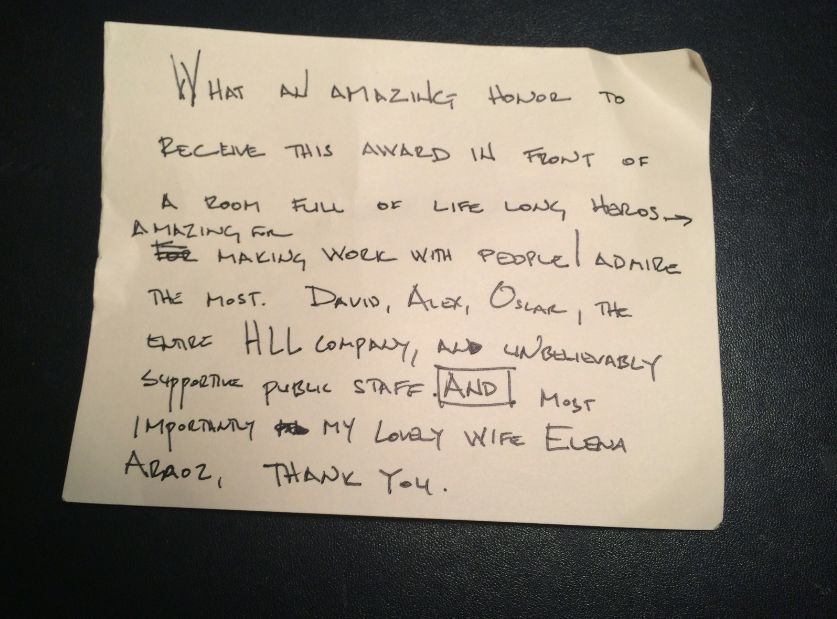 WHAT AN AMAZING HONOR TO
RECEIVE THIS AWARD IN FRONT OF
A ROOM FULL OF LIFE LONG HEROS →
AMAZING FOR
MAKING WORK WITH PEOPLE I ADMIRE
THE MOST. DAVID, ALEX, OSCAR, THE
ENTIRE HLL COMPANY, AND UNBELIEVABLY
SUPPORTIVE PUBLIC STAFF. AND MOST
IMPORTANTLY MY LOVELY WIFE ELENA
ARAOZ, THANK YOU.